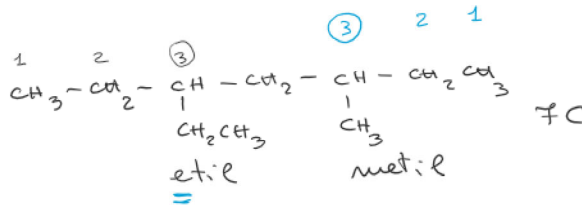 1 2 3 3 2 1
CH3 - CH2 - CH - CH2 - CH - CH2 CH3
CH2CH3 CH3 7C
etil metil